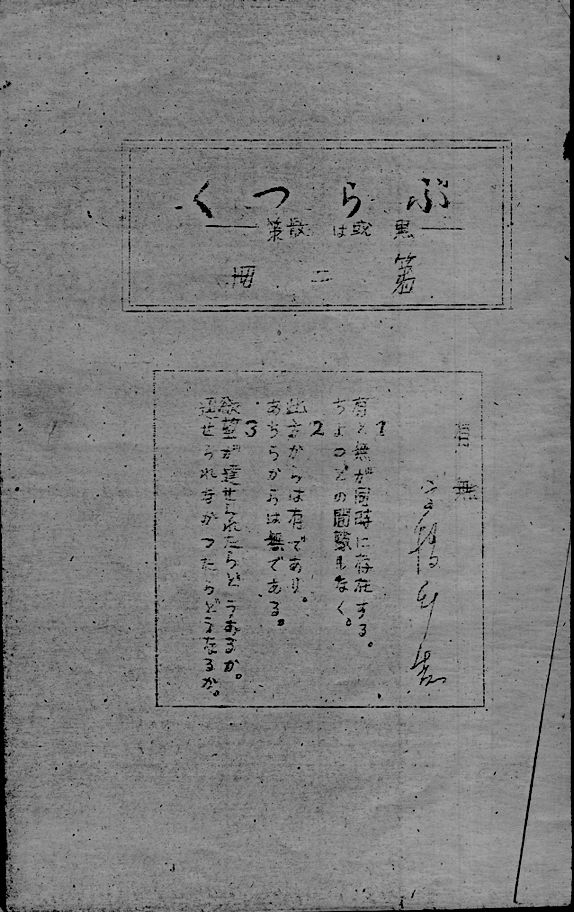 ぶらつく
黒 或は 散策
第二冊
有無
1
有と無が同時に存在する。
ちよつとの間隙もなく。
2
此方からは有であり、
あちらからは無である。
3
欲望が達せられたらどうなるか。
達せられなかつたらどうなるか。